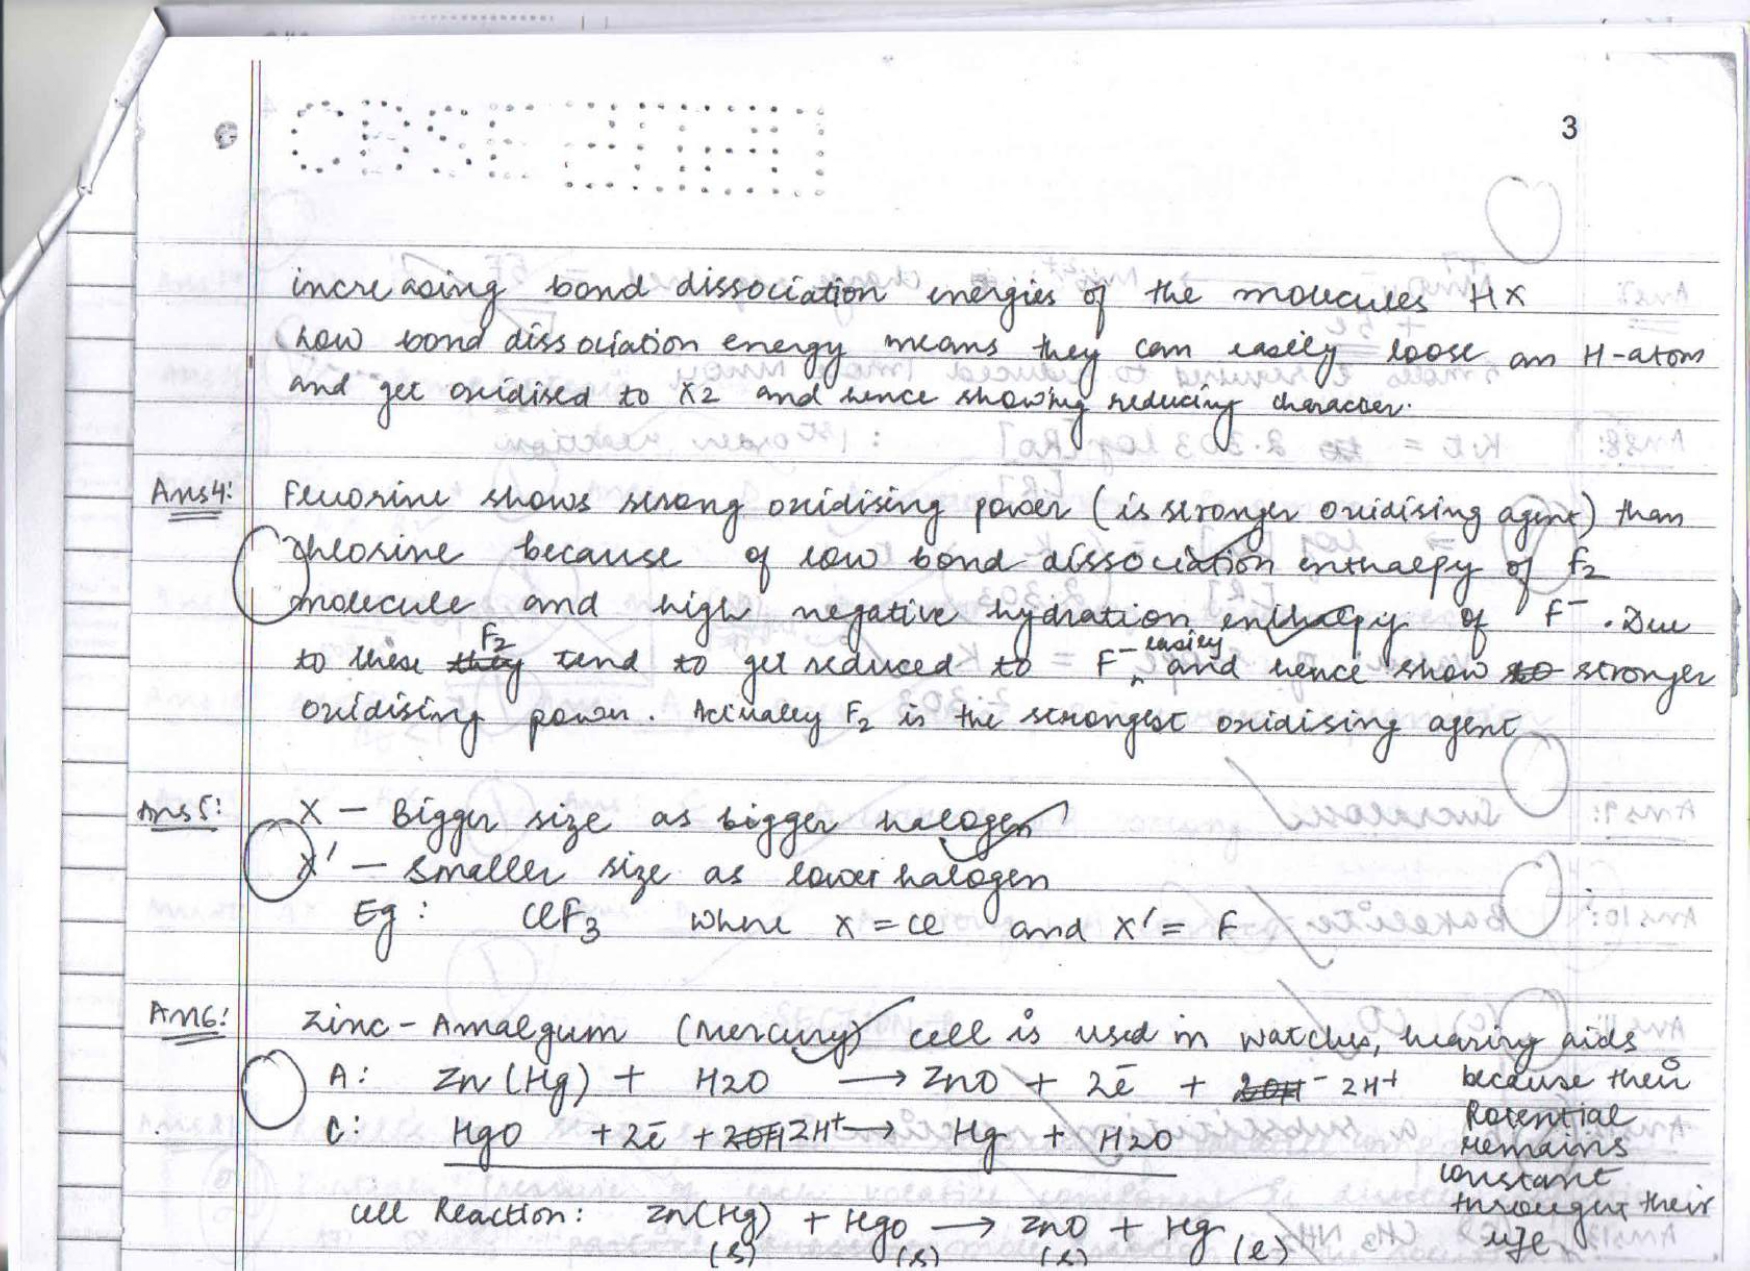 CBSE
3
increasing bond dissociation energies of the molecules HX
Low bond dissociation energy means they can easily loose an H-atom
and get oxidised to X2 and hence showing reducing character.
Ans4: Fluorine shows strong oxidising power (is stronger oxidising agent) than
chlorine because of low bond dissociation enthalpy of F2
molecule and high negative hydration enthalpy of F⁻. Due
to these they F2 tend to get reduced to F⁻ easily and hence show so stronger
oxidising power. Actually F2 is the strongest oxidising agent
Ans5: X — Bigger size as bigger halogen
X' — Smaller size as lower halogen
Eg: ClF3 where X = Cl and X' = F
Ans6: Zinc - Amalgum (Mercury) cell is used in watches, hearing aids
A: Zn(Hg) + H2O ⟶ ZnO + 2ē + 2OH⁻ 2H⁺ because their
C: HgO + 2ē + 2OH 2H⁺ ⟶ Hg + H2O Potential
remains
constant
Cell Reaction: Zn(Hg) + HgO ⟶ ZnO + Hg througout their
(s) (s) (s) (l) life